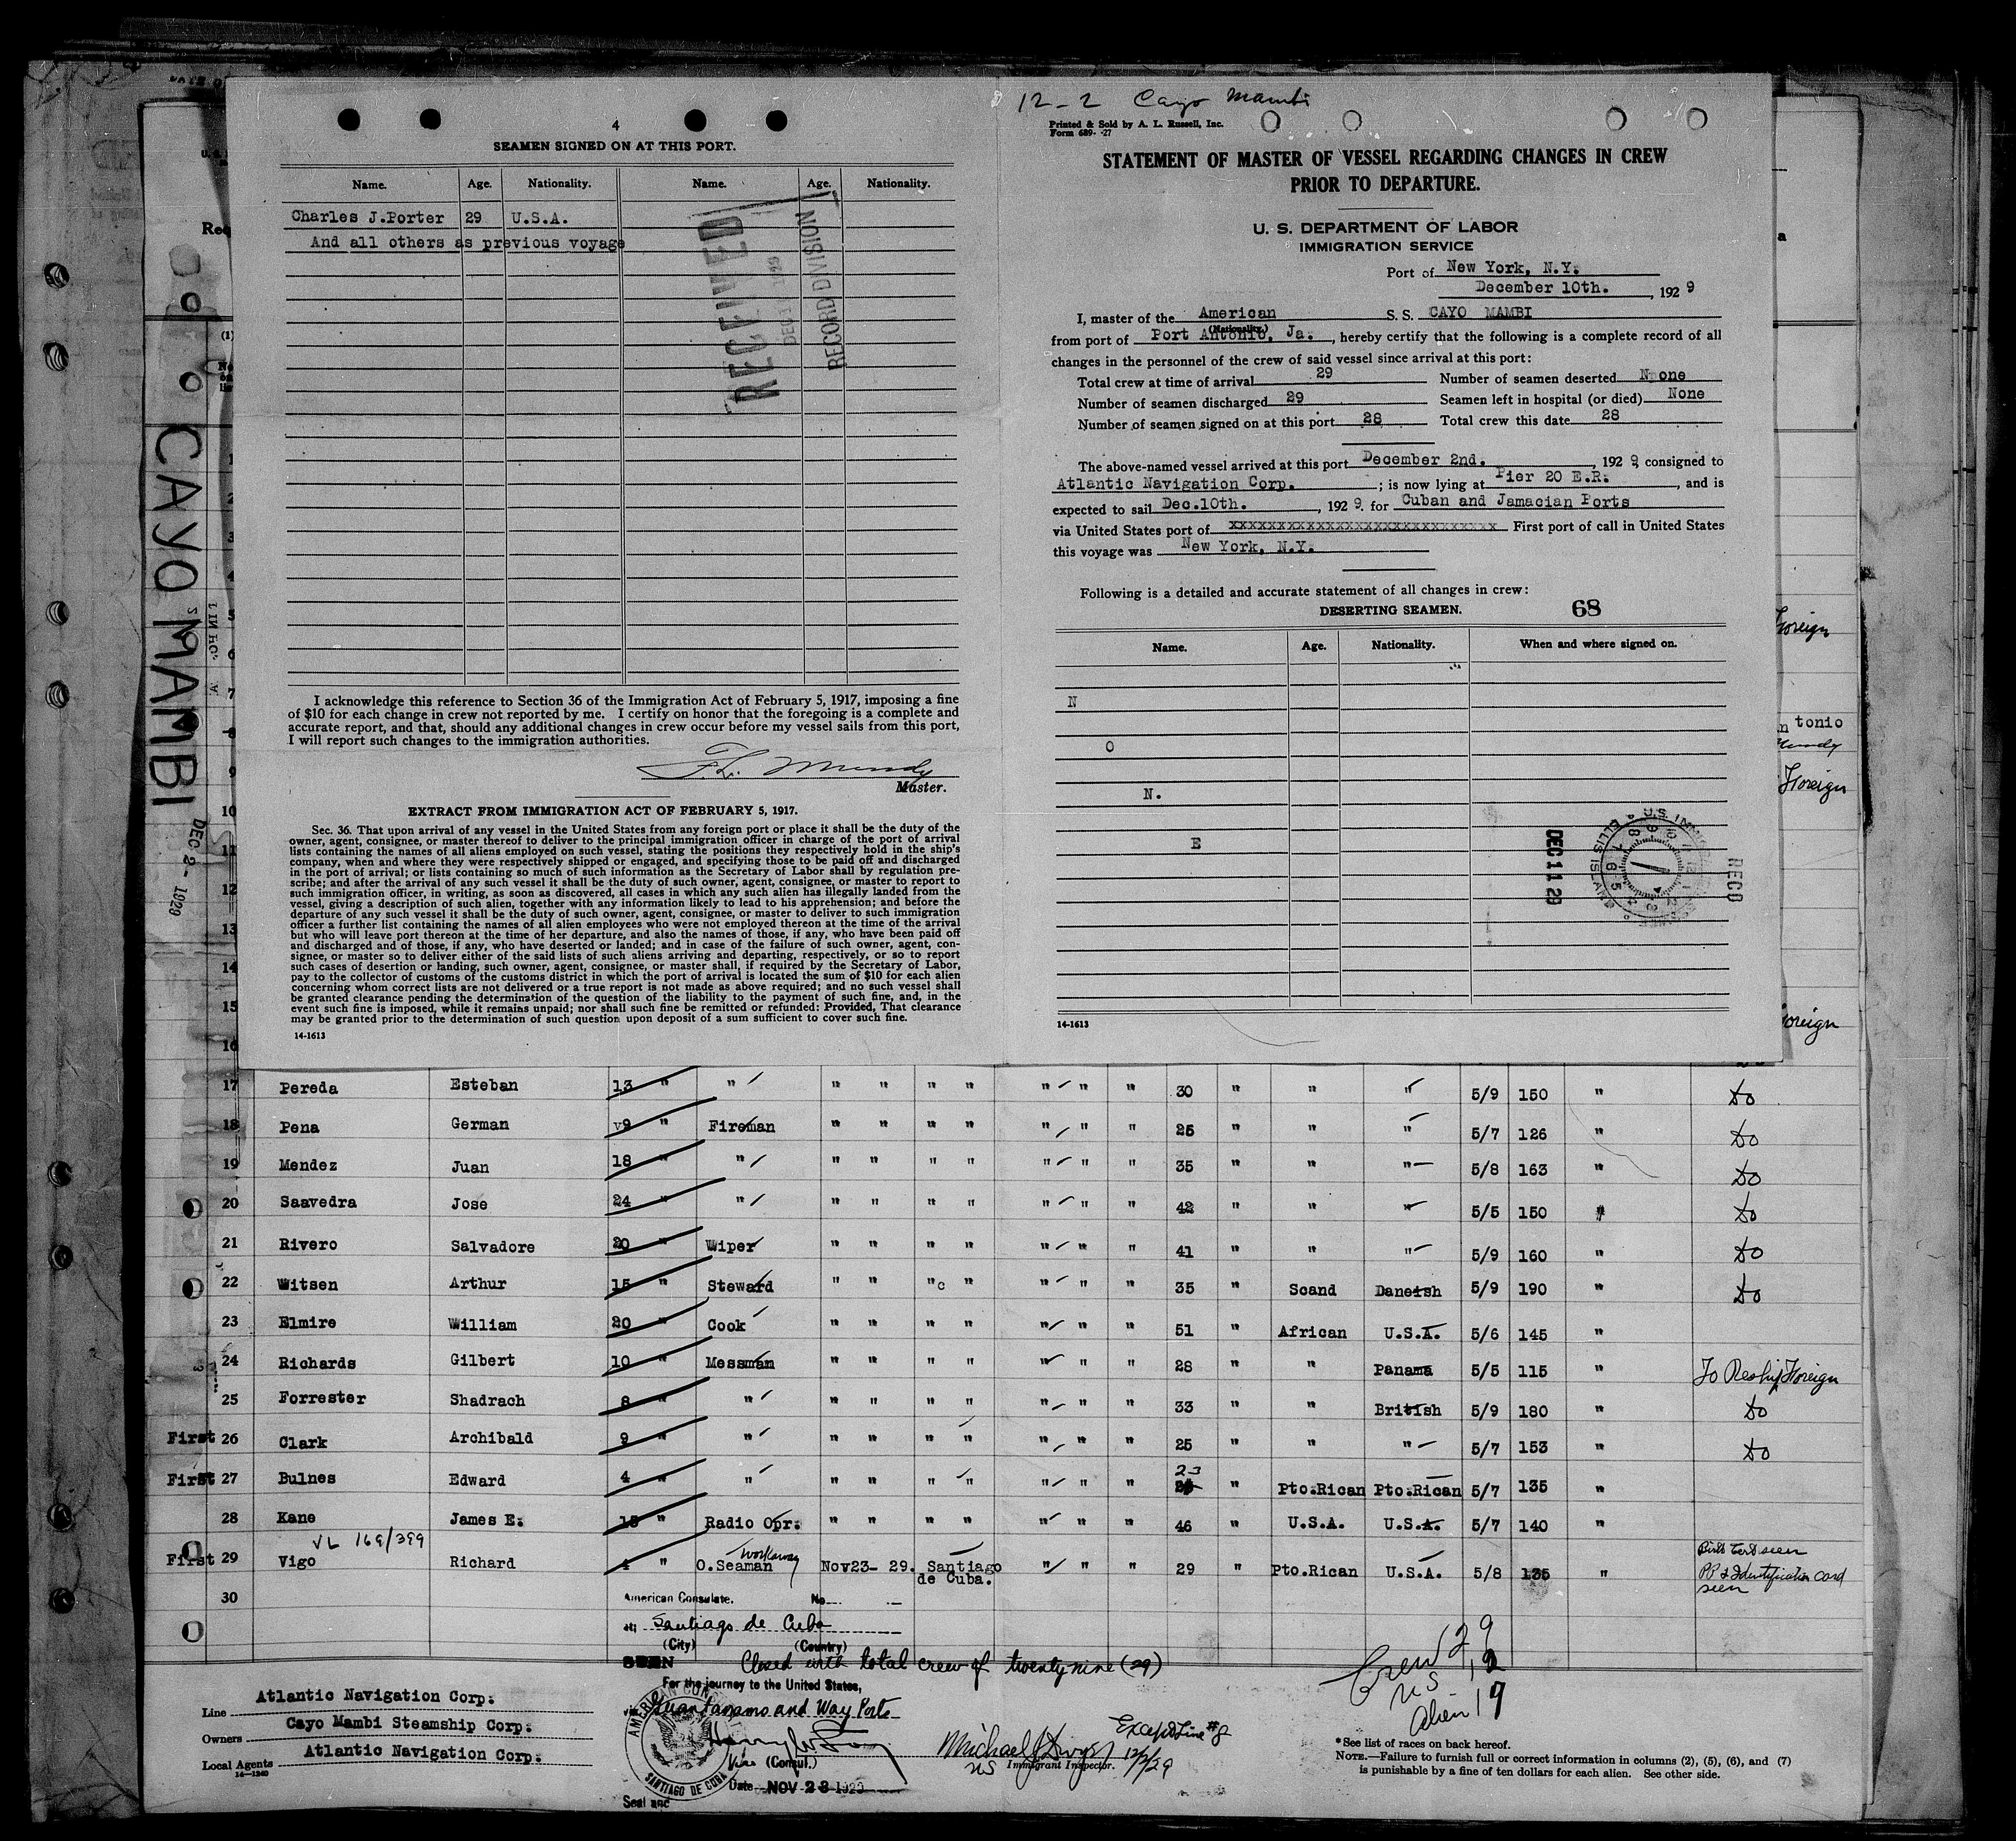 12-2 Cayo Mambi
4
SEAMEN SIGNED ON AT THIS PORT.
Name. Age. Nationality. Name. Age. Nationality.
Charles J.Porter 29 U.S.A.
And all others as previous voyage
RECEIVED
RECORD DIVISION
I acknowledge this reference to Section 36 of the Immigration Act of February 5, 1917, imposing a fine
of $10 for each change in crew not reported by me. I certify on honor that the foregoing is a complete and
accurate report, and that, should any additional changes in crew occur before my vessel sails from this port,
I will report such changes to the immigration authorities.
F.L. Mundy
Master.
EXTRACT FROM IMMIGRATION ACT OF FEBRUARY 5, 1917.
Sec. 36. That upon arrival of any vessel in the United States from any foreign port or place it shall be the duty of the
owner, agent, consignee, or master thereof to deliver to the principal immigration officer in charge of the port of arrival
lists containing the names of all aliens employed on such vessel, stating the positions they respectively hold in the ship's
company, when and where they were respectively shipped or engaged, and specifying those to be paid off and discharged
in the port of arrival; or lists containing so much of such information as the Secretary of Labor shall by regulation pre-
scribe; and after the arrival of any such vessel it shall be the duty of such owner, agent, consignee, or master to report to
such immigration officer, in writing, as soon as discovered, all cases in which any such alien has illegally landed from the
vessel, giving a description of such alien, together with any information likely to lead to his apprehension; and before the
departure of any such vessel it shall be the duty of such owner, agent, consignee, or master to deliver to such immigration
officer a further list containing the names of all alien employees who were not employed thereon at the time of the arrival
but who will leave port thereon at the time of her departure, and also the names of those, if any, who have been paid off
and discharged and of those, if any, who have deserted or landed; and in case of the failure of such owner, agent, con-
signee, or master so to deliver either of the said lists of such aliens arriving and departing, respectively, or so to report
such cases of desertion or landing, such owner, agent, consignee, or master shall, if required by the Secretary of Labor,
pay to the collector of customs of the customs district in which the port of arrival is located the sum of $10 for each alien
concerning whom correct lists are not delivered or a true report is not made as above required; and no such vessel shall
be granted clearance pending the determination of the question of the liability to the payment of such fine, and, in the
event such fine is imposed, while it remains unpaid; nor shall such fine be remitted or refunded: Provided, That clearance
may be granted prior to the determination of such question upon deposit of a sum sufficient to cover such fine.
14-1613
Printed & Sold by A. L. Russell, Inc.
Form 689- -27
STATEMENT OF MASTER OF VESSEL REGARDING CHANGES IN CREW
PRIOR TO DEPARTURE.
U. S. DEPARTMENT OF LABOR
IMMIGRATION SERVICE
Port of New York, N.Y.
December 10th. , 192 9
I, master of the American S. S. CAYO MAMBI
(Nationality.)
from port of Port Antonio, Ja. , hereby certify that the following is a complete record of all
changes in the personnel of the crew of said vessel since arrival at this port:
Total crew at time of arrival 29 Number of seamen deserted None
Number of seamen discharged 29 Seamen left in hospital (or died) None
Number of seamen signed on at this port 28 Total crew this date 28
The above-named vessel arrived at this port December 2nd. , 192 9, consigned to
Atlantic Navigation Corp. ; is now lying at Pier 20 E.R. , and is
expected to sail Dec.10th. , 192 9. for Cuban and Jamacian Ports
via United States port of xxxxxxxxxxxxxxxxxxxxxxxxxxxx First port of call in United States
this voyage was New York, N.Y.
Following is a detailed and accurate statement of all changes in crew:
DESERTING SEAMEN. 68
Name. Age. Nationality. When and where signed on.
N
O
N.
E
DEC 11 29
RECD
14-1613
CAYO MAMBI
DEC 2- 1929
(1)
5
6
7
8
9
10
11
12
13
14
15
16
Foreign
tonio
Mundy
Foreign
17 Pereda Esteban 13 " " " " " " " " " 30 " " " 5/9 150 " Do
18 Pena German 9 " Fireman " " " " " " " 25 " " " 5/7 126 " Do
19 Mendez Juan 18 " " " " " " " " " 35 " " " 5/8 163 " Do
20 Saavedra Jose 24 " " " " " " " " " 42 " " " 5/5 150 " Do
21 Rivero Salvadore 20 " Wiper " " " " " " " 41 " " " 5/9 160 " Do
22 Witsen Arthur 15 " Steward " " " " " " " 35 " Scand Daneish 5/9 190 " Do
23 Elmire William 20 " Cook " " " " " " " 51 " African U.S.A. 5/6 145 "
24 Richards Gilbert 10 " Messman " " " " " " " 28 " " Panama 5/5 115 " To Reship Foreign
25 Forrester Shadrach 8 " " " " " " " " " 33 " " British 5/9 180 " Do
First 26 Clark Archibald 9 " " " " " " " " " 25 " " " 5/7 153 " Do
First 27 Bulnes Edward 4 " " " " " " " " " 23 " Pto.Rican Pto.Rican 5/7 135 "
28 Kane James E. 15 " Radio Opr. " " " " " " " 46 " U.S.A. U.S.A. 5/7 140 "
VL 169/399
First 29 Vigo Richard 4 " O.Seaman workaway Nov23- 29. Santiago de Cuba. " " " 29 " Pto.Rican U.S.A. 5/8 135 " Birth Cert seen
PP & Identification card
seen
30
American Consulate. No
at Santiago de Cuba
(City) (Country)
SEEN Closed with total crew of twenty nine (29)
For the journey to the United States,
via Guantanamo and Way Ports
Vice (Consul.)
Date NOV 28 1929
Seal and
AMERICAN CONSULATE
SANTIAGO DE CUBA
Line Atlantic Navigation Corp.
Owners Cayo Mambi Steamship Corp.
Local Agents Atlantic Navigation Corp.
14-1240
Except Line #8
12/2/29
US Immigrant Inspector.
Crew 29
US
Alien 19
*See list of races on back hereof.
NOTE.—Failure to furnish full or correct information in columns (2), (5), (6), and (7)
is punishable by a fine of ten dollars for each alien. See other side.